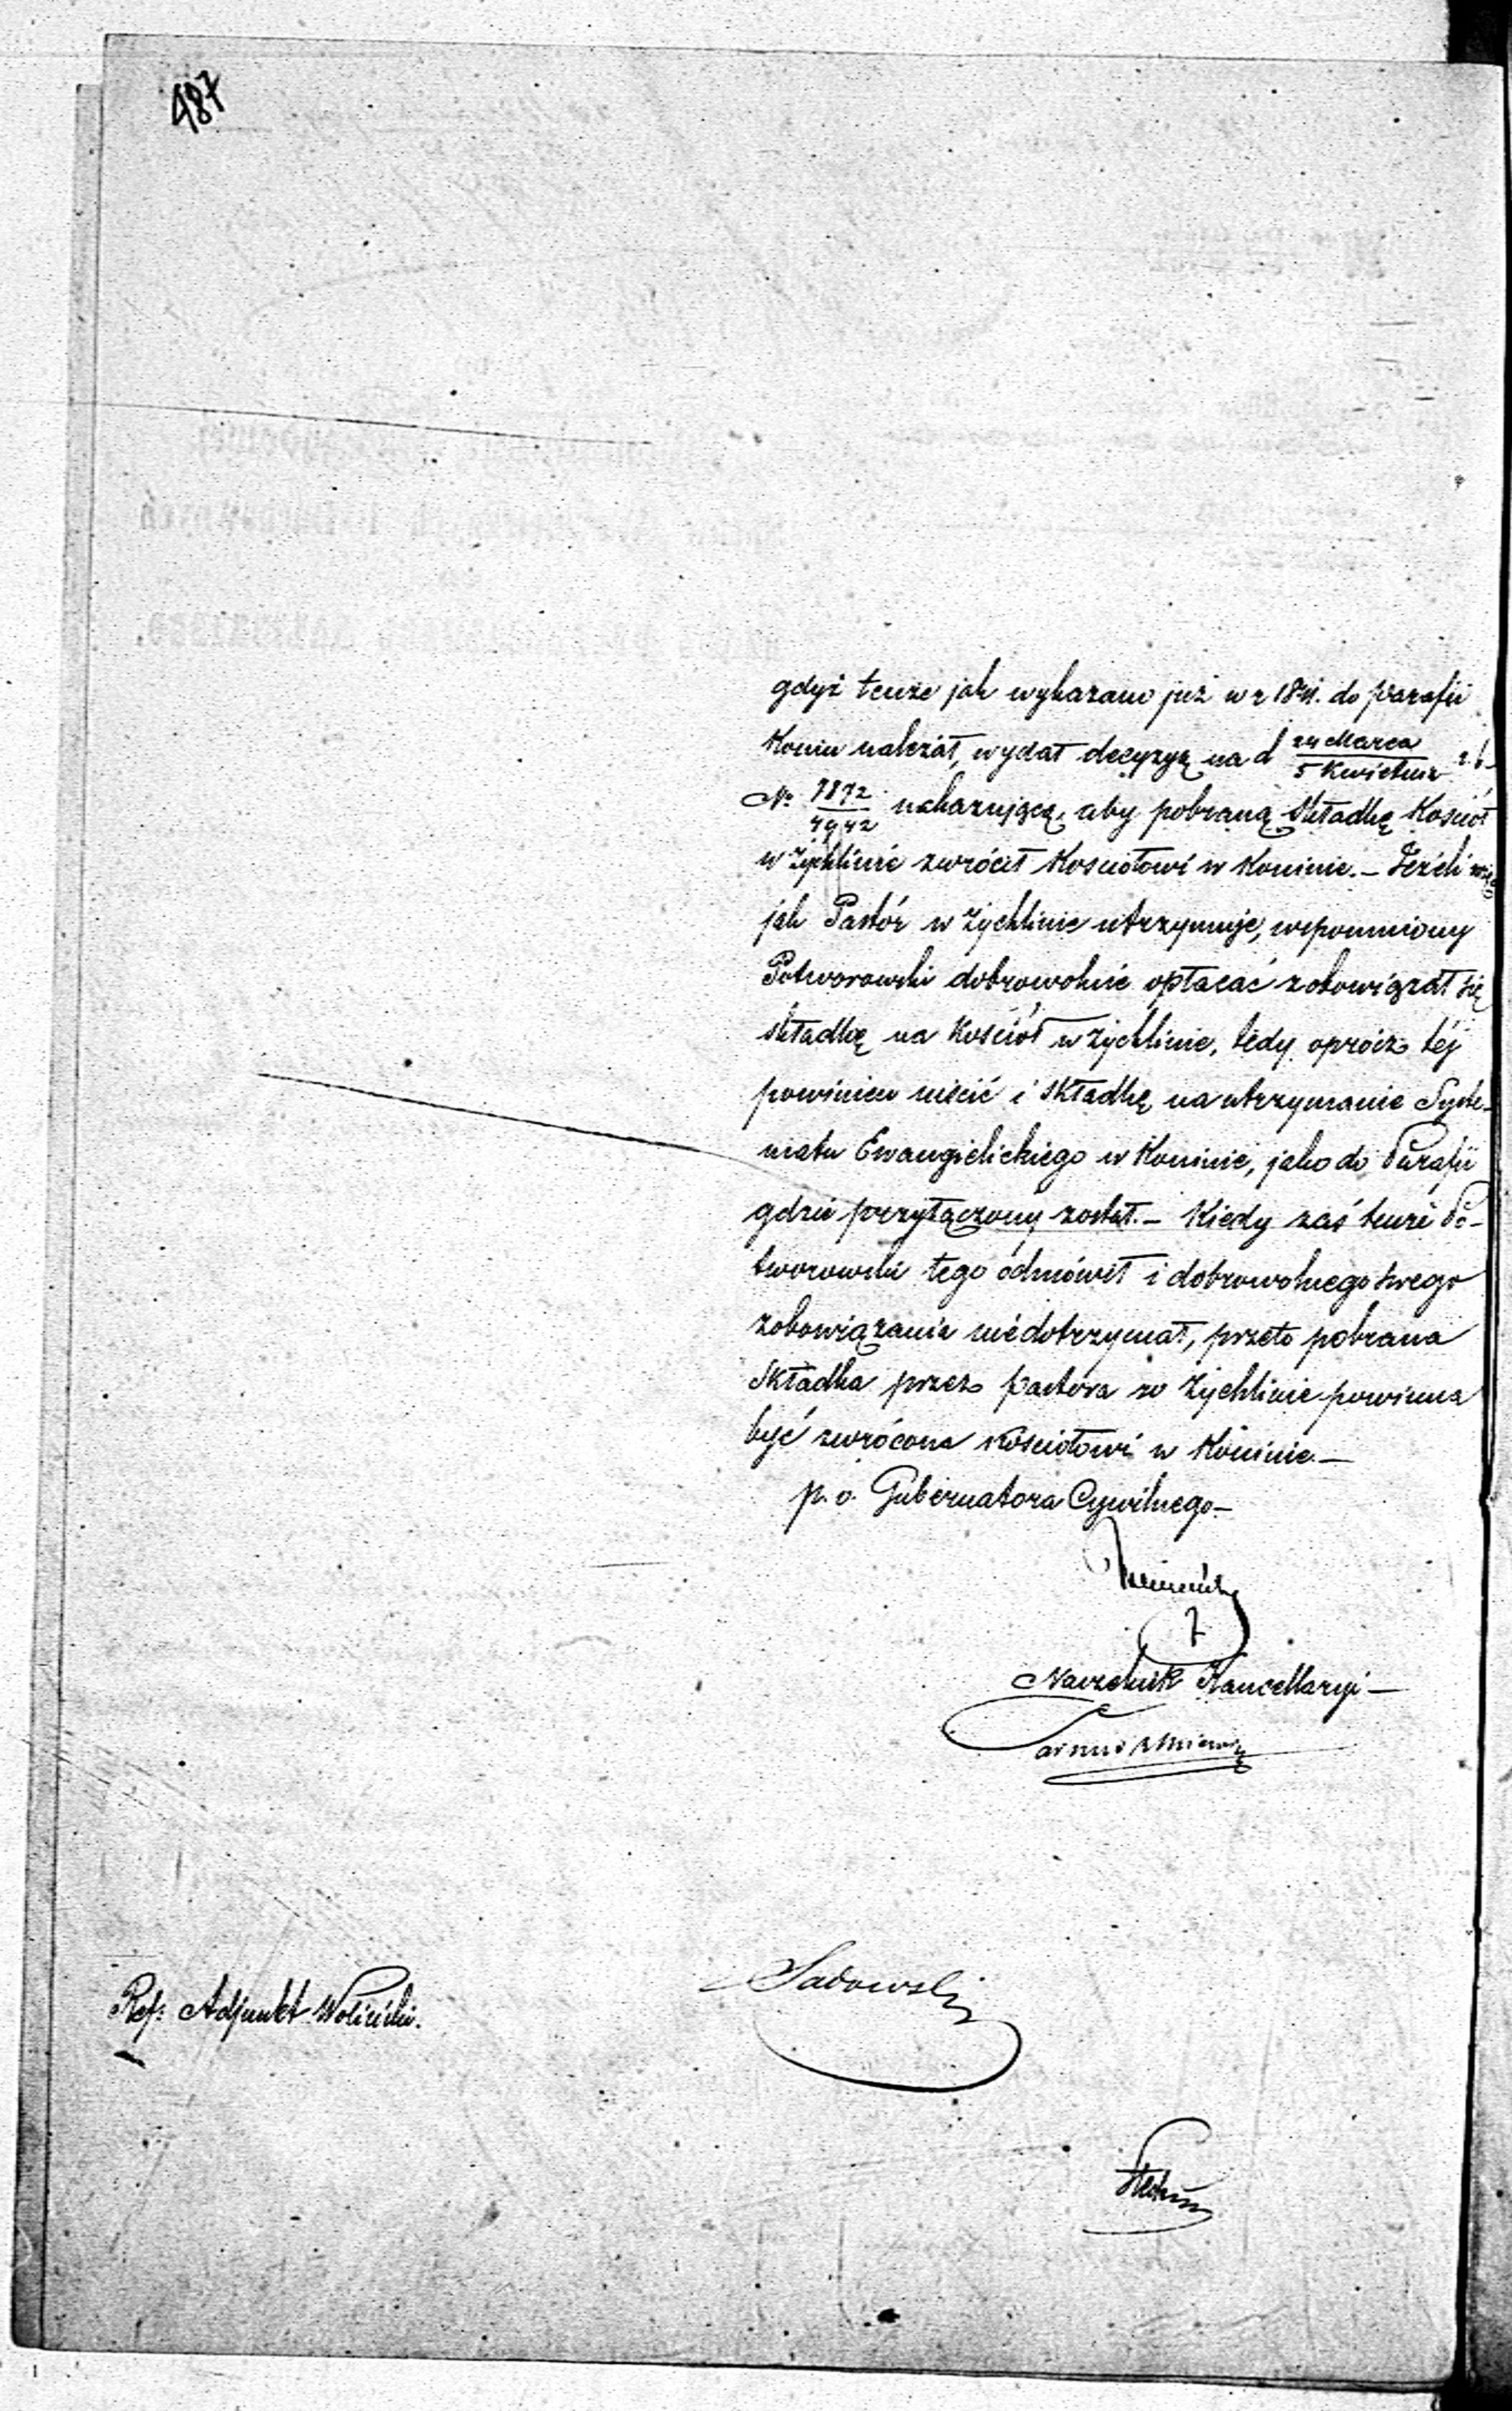 487
gdyż tenże jak wykazano już w r 1841. do parafii
Konin należał, wydał decyzyą na d 24 Marca / 5 Kwietnia r. b.
No 7872 / 4942 nakazującą, aby pobraną Składkę Kościół
w Żychlinie zwrócił Kosciołowi w Koninie. – Jeżeli
jak Pastór w Żychlinie utrzymuje, wspomniony
Potworowski dobrowolnie opłacać zobowiązał się
składkę na Kościół w Żychlinie, tedy oprócz téj
powinien uiścić i składkę na utrzymanie Syste-
matu Ewangielickiego w Koninie, jako do Parafii
gdzie przyłączony został. – Kiedy zaś tenże Po-
tworowski tego odmówił i dobrowolnego swego
zobowiązania niedotrzymał, przeto pobrana
Składka przez pastora w Żychlinie powinna
być zwrócona Kościołowi w Koninie. –
p. o. Gubernatora Cywilnego –
Naczelnik Kancellaryi –
Sadowski
Ref: Adjunkt